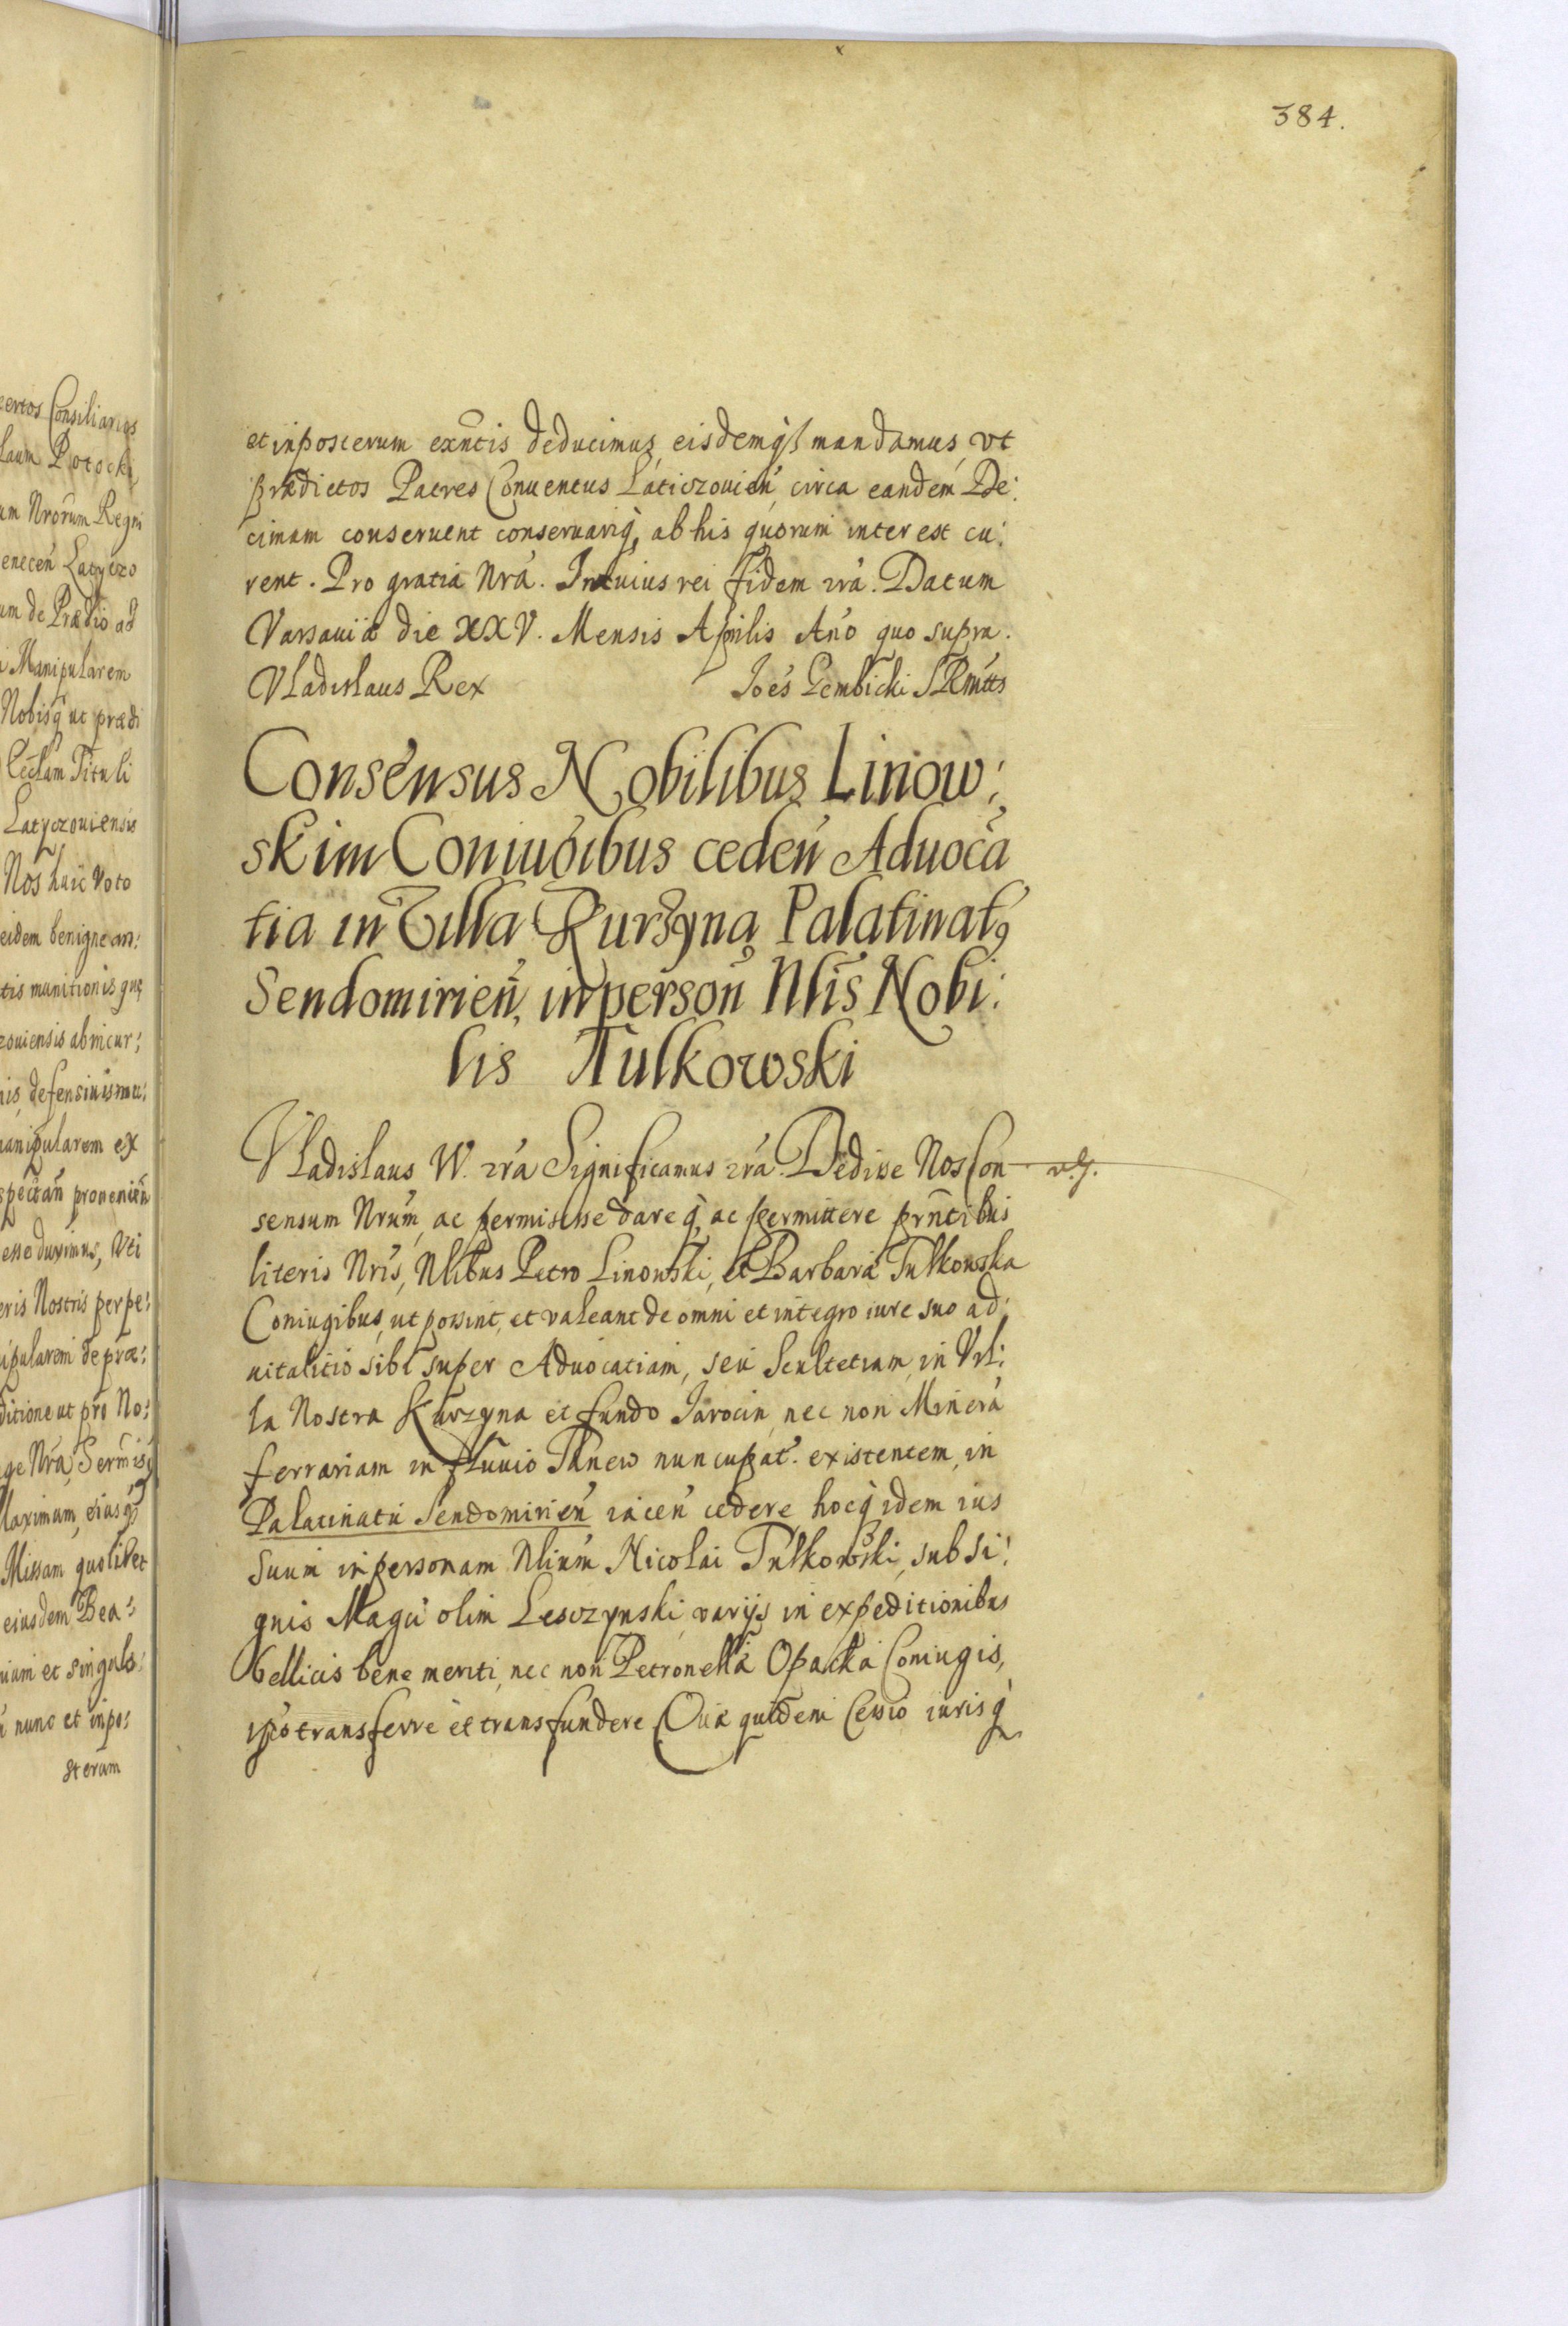 384.
ertos Consiliarios
laum Potocki
um Nrorum Regni
enecen Latyczo
um de Prædio ad
Manipularem
Nobisq ut prædi
Ecclam Tituli
Latyczouiensis
Nos huic Voto
eidem benigne an:
tis munitionis que
zouiensis ab incur:
nis, defensiuis mu:
manipularem ex
spectan prouenien
esse duximus, Uti
eris Nostris perpe:
ipularem de præ:
ditione ut pro No:
ge Nra, Sermisq
Maximum, eiusq
Missam quolibet
eiusdem Bea:
nium et singulo:
nunc et inpo:
sterum
et inposterum exntis deducimus, eisdemq mandamus, vt
prædictos Patres Conuentus Laticzouien circa eandem De:
cimam conseruent conseruariq, ab his quorum interest cu:
rent. Pro gratia Nra. In cuius rei fidem rra. Datum
Varsauiæ die XXV. Mensis Aprilis Ano quo supra.
Vladislaus Rex Joes Gembicki SRmtts
Consensus Nobilibus Linow:
skim Coniugibus ceden Aduoca
tia in Villa Kurzyna Palatinatq
Sendomirien, in person Nlis Nobi:
lis Tulkowski
Vladislaus W. rra Significamus rra. Dedisse Nos Con
sensum Nrum, ac permisisse dareq, ac permittere prntibus
literis Nris, Nlibus Petro Linowski, et Barbara Tulkowska
Coniugibus, ut possint, et valeant de omni et integro iure suo ad:
uitalitio sibi super Aduocatiam, seu Scultetiam, in Vil:
la Nostra Kurzyna et fundo Jarocin, nec non Minera
ferrariam in fluuio Thnew nuncupat. existentem, in
Palatinatu Sendomirien iacen cedere hocq idem ius
suum in personam Nlium Nicolai Tulkowski, sub si:
gnis Magci olim Lesczynski, varijs in expeditionibus
bellicis bene meriti, nec non Petronella Opacka Coniugis,
ipso transferre et transfundere Quæ quidem Cessio iurisq